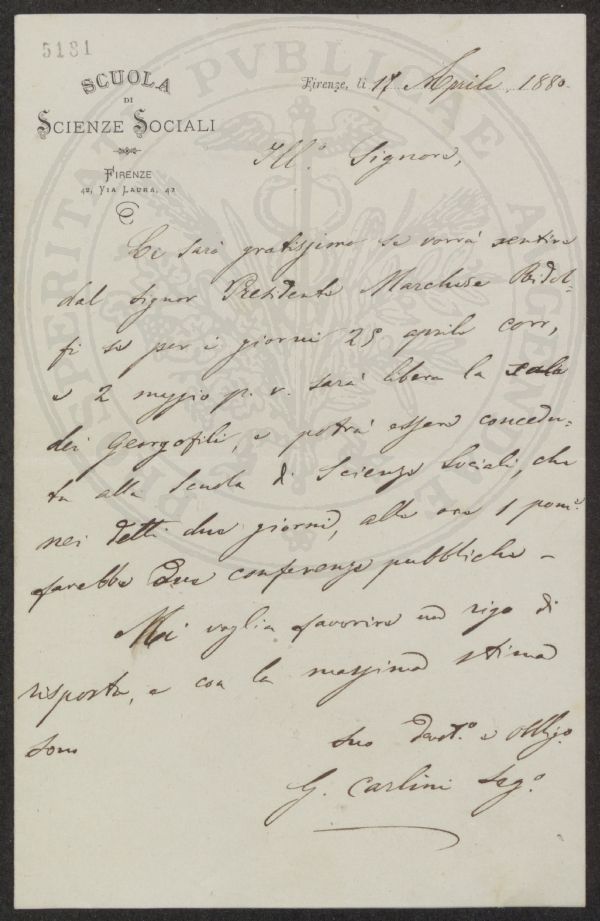 5131
SCUOLA
DI
SCIENZE SOCIALI
FIRENZE
42, VIA LAURA, 42
Firenze, li 17 Aprile 1880.
Ill.º Signore,
Le sarò gratissimo se vorrà sentire
dal Signor Presidente Marchese Ridol-
fi se per i giorni 25 aprile corr,
e 2 maggio p. v. sarà libera la sala
dei Georgofili, e potrà essere concedu-
ta alla Scuola di Scienze Sociali, che
nei detti due giorni, alle ore 1 pomº.
farebbe due conferenze pubbliche –
Mi voglia favorire un rigo di
risposta, e con la massima stima
sono
suo devot.º e obbligº.
G. Carlini Seg.º
PROSPERITATI PVBLICAE AVGENDAE